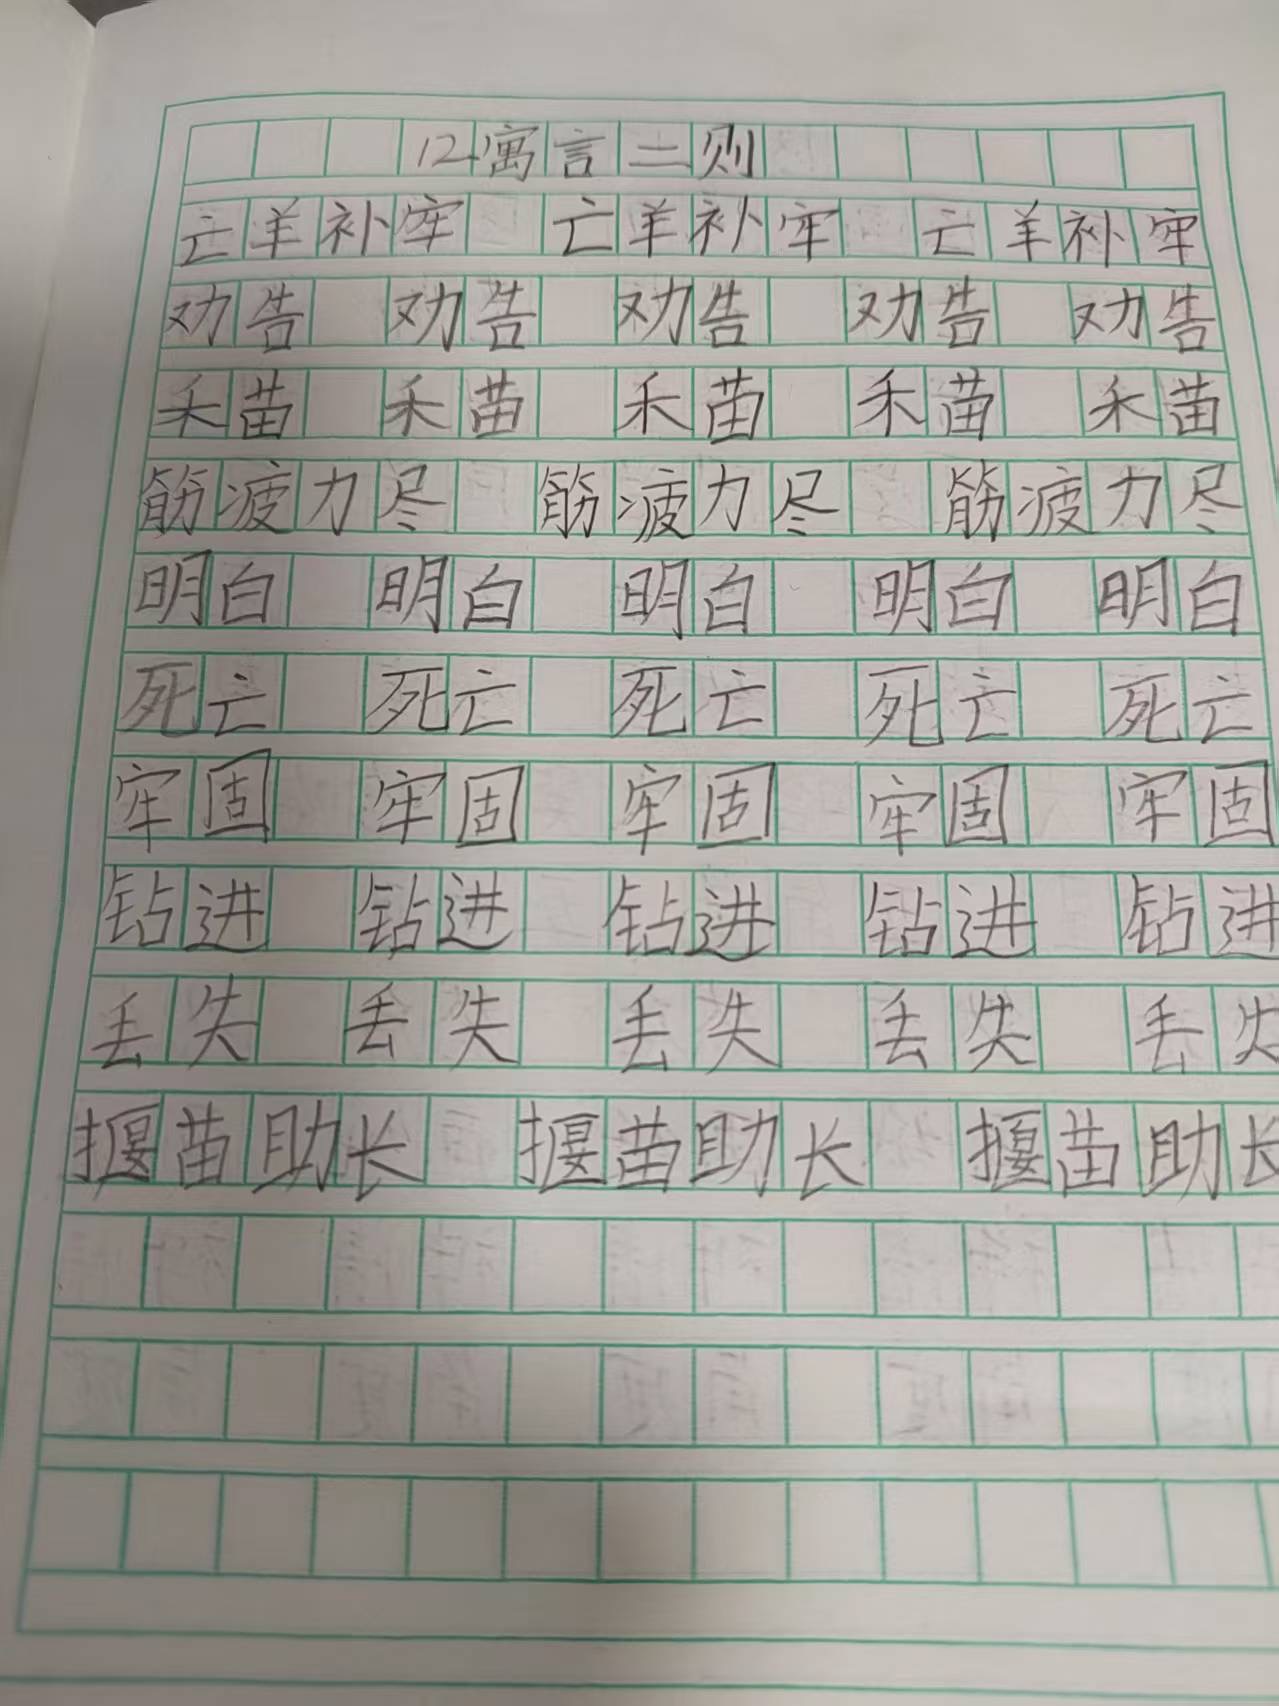 12寓言二则
亡羊补牢 亡羊补牢 亡羊补牢
劝告 劝告 劝告 劝告 劝告
禾苗 禾苗 禾苗 禾苗 禾苗
筋疲力尽 筋疲力尽 筋疲力尽
明白 明白 明白 明白 明白
死亡 死亡 死亡 死亡 死亡
牢固 牢固 牢固 牢固 牢固
钻进 钻进 钻进 钻进 钻进
丢失 丢失 丢失 丢失 丢失
揠苗助长 揠苗助长 揠苗助长